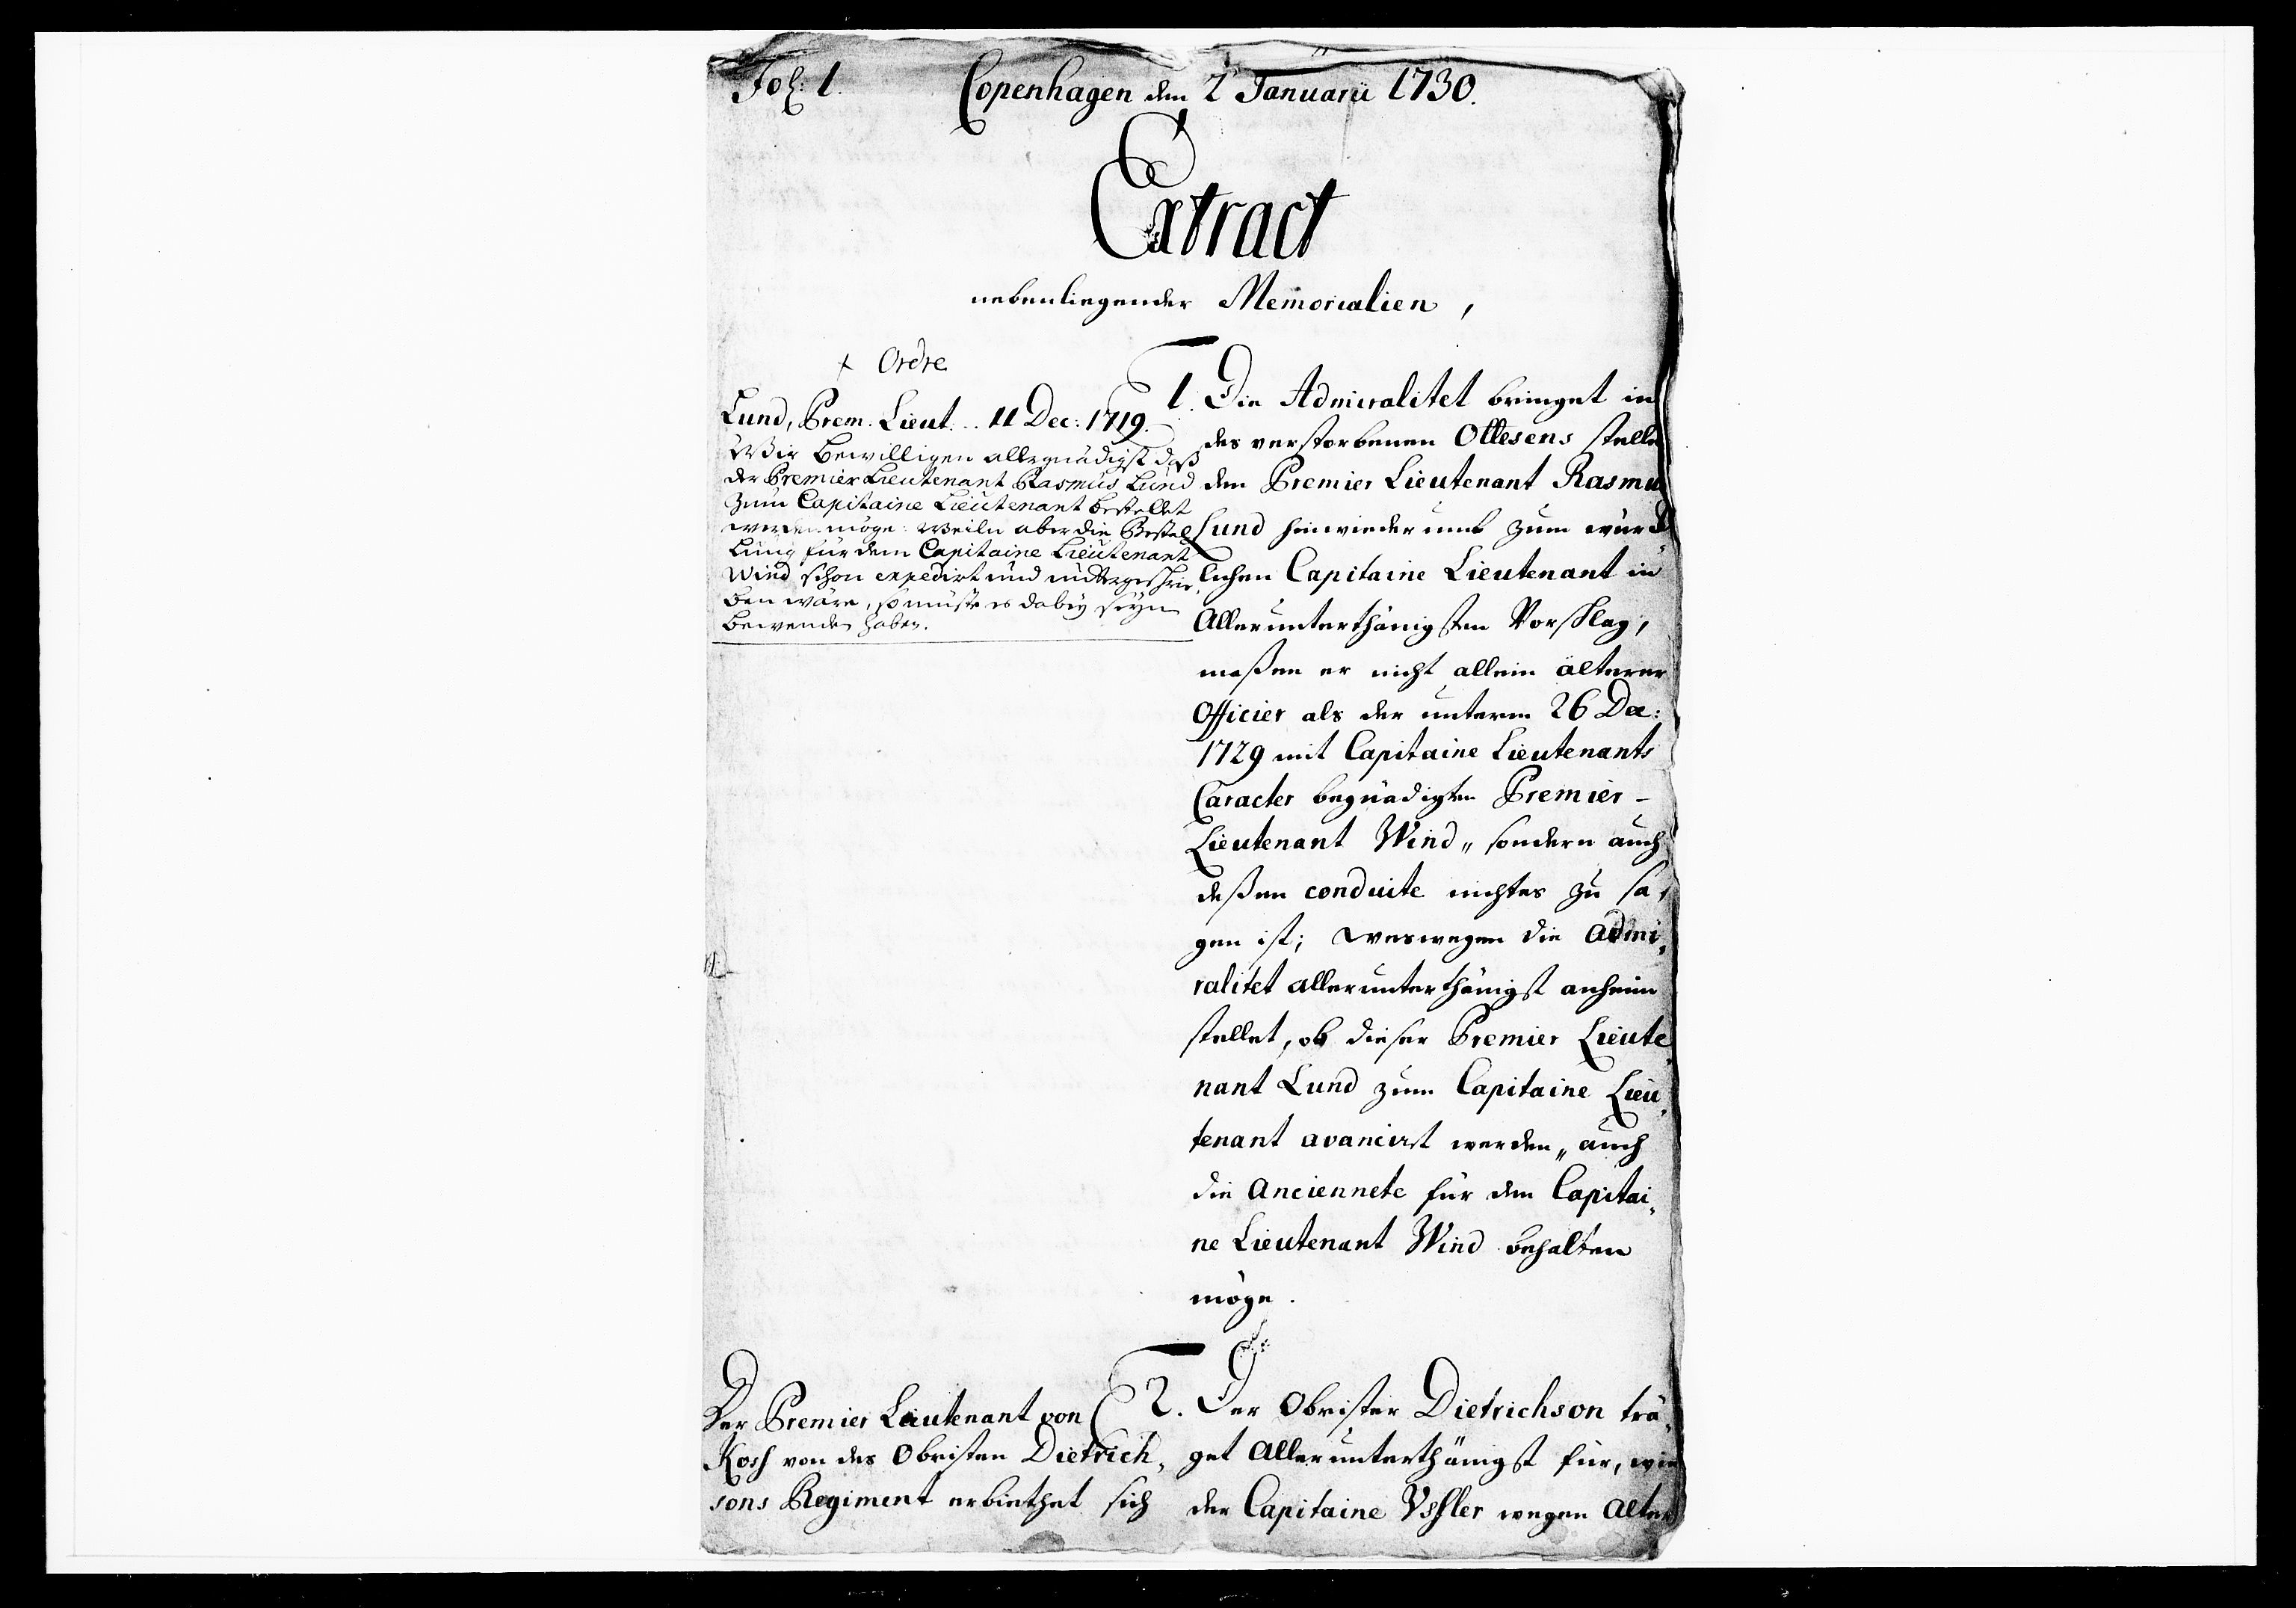 Fol: 1.
Copenhagen den 2 Januarii 1730.
Extract
nebenliegender Memorialien,
+ Ordre
Lund, Prem. Lieut. .. 11 Dec: 1719.
Wir bewilligen allergnädigst daß
der Premier Lieutenant Rasmus Lund
zum Capitaine Lieutenant bestellet
werden möge: Weiln aber die Bestal
lung für dem Capitaine Lieutenant
Wind schon expedirt und unterges
ben wäre, so müste es dabey seyn
bewenden haben.
1. Die Admiralitet bringet in
des verstorbenen Ollesens stelle
den Premier Lieutenant Rasmu
Lund hinwiederumb zum würck
lichen Capitaine Lieutenant in
Allerunterthänigsten Vorschlag,
maßen er nicht allein älterer
Officier als der unterm 26 Dec:
1729 mit Capitaine Lieutenants
Caracter begnädigten Premier-
Lieutenant Wind, sondern auch
deßen conduite nichtes zu sa,
gen ist; weswegen die Admi,
ralitet allerunterthänigst anheim
stellet, ob dieser Premier Lieute
nant Lund zum Capitaine Lieu,
tenant avancirt werden, auch
die Anciennete für dem Capitai,
ne Lieutenant Wind behalten
möge.
Der Premier Lieutenant von
Kosh von des Obristen Dietrich,
sons Regiment erbiethet sich
2. Der Obrister Dietrichson trä,
get Allerunterthänigst für, wie
der Capitaine wegen Alter